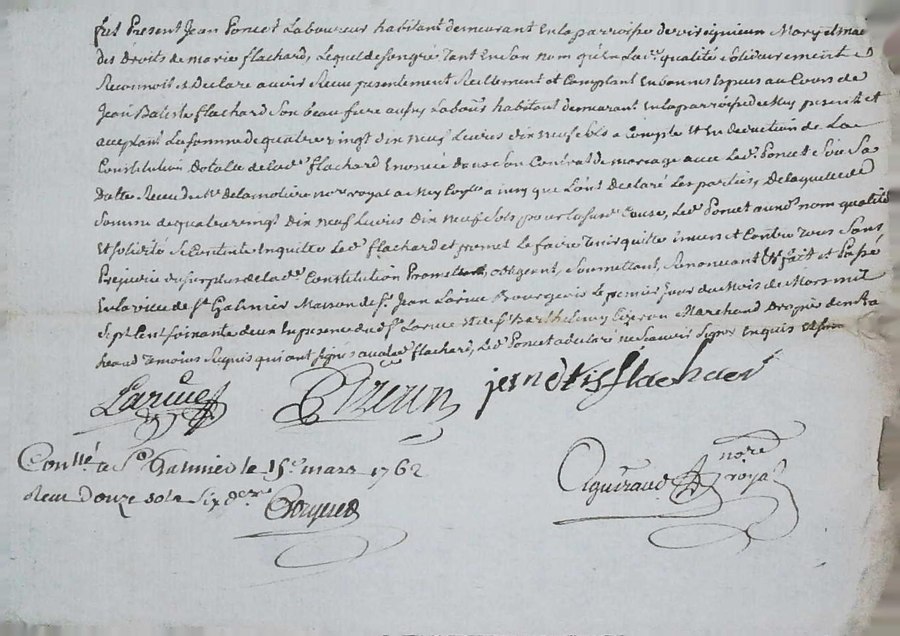 fut Present Jean Poncet Laboureur habitant demeurant En la parroisse de virignieu Mary et mae
des Droits de marie flachard, Lequel de son gré Tant En son nom qu'En la d. qualité solidairement
Reconnoit et Declare avoir Receu presentement Reellement et Comptant En bonnes Espices au Cours de
Jean Batiste flachard son beau frere aussy Labour habitant demeurant En la parroisse de present et
acceptant La somme de quatre vingt Dix neuf Livres dix neuf sols a Compte et En deduction de La
Constitution Dotalle de la d. flachard Enoncé dans son Contrat de mariage avec Le d. Poncet soûs Sa
Datte Receu de la moliere not royal a ainsy que L'ont declaré Les parties, De laquelle de
somme de quatre vingt dix neuf Livres Dix neuf sols pour la susd. Cause, Le d. Poncet aux d. nom qualité
Et solidité se Contente En quitte Le d. flachard et promet Le faire Tenir quitte Envers et Contre Tous Sans
Prejudice du surplus de la d. Constitution Promettant, obligeant, soumettant, Renonçant &c fait et Passé
En la ville de St. Galmier Maison de Sr. Jean Larüe Bourgeois Le premier Jour du Mois de Mars mil
Sept Cent soixante deux En presence du d. Sr Larue Et de Sr Barthelemy Marchand
Temoins Requis qui ont signés avec le d. flachard, Le d. Poncet a declaré ne Scavoir Signer Enquis Et
Larüe
jean btis flachar
Con.llé a St Galmier le 15e mars 1762
Receu Douze sols Six d.
notre
royal